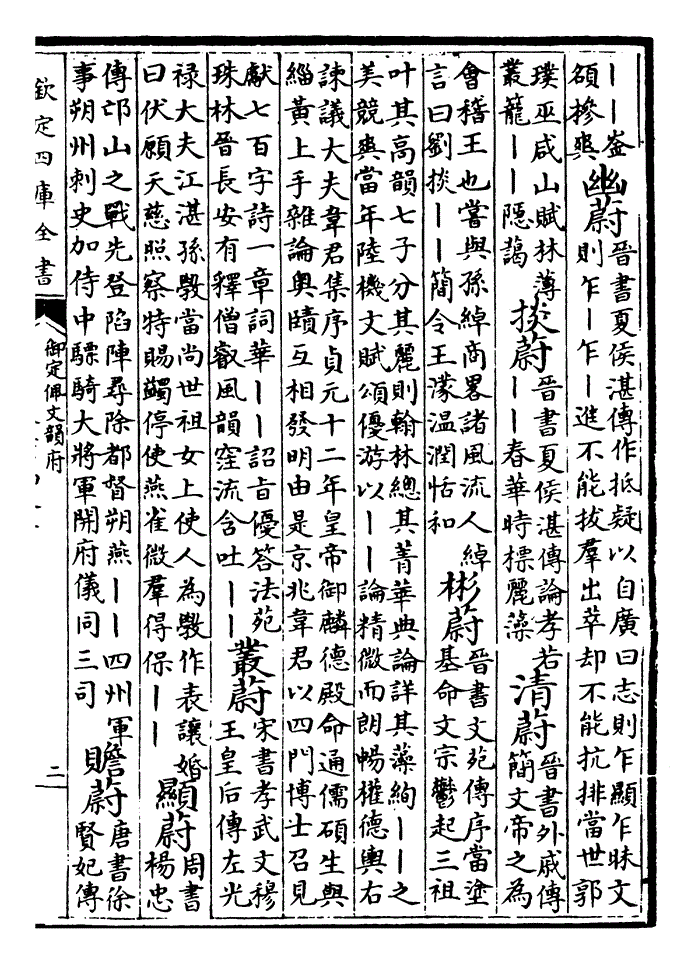 丨丨崟
碩摻爽
幽蔚
晉書夏侯湛傳作抵疑以自廣曰志則乍顯乍昧文
則乍丨乍丨進不能拔羣出萃却不能抗排當世郭
璞巫咸山賦林薄
叢籠丨丨隱藹
掞蔚
晉書夏侯湛傳論孝若
丨丨春華時標麗藻
清蔚
晉書外戚傳
簡文帝之為
會稽王也嘗與孫綽商畧諸風流人綽
言曰劉惔丨丨簡令王濛温潤恬和
彬蔚
晉書文苑傳序當塗
基命文宗鬱起三祖
叶其高韻七子分其麗則翰林總其菁華典論詳其藻絢丨丨之
美競爽當年陸機文賦頌優游以丨丨論精微而朗暢權德輿右
諫議大夫韋君集序貞元十二年皇帝御麟德殿命通儒碩生與
緇黃上手雜論奥賾互相發明由是京兆韋君以四門博士召見
獻七百字詩一章詞華丨丨詔旨優答法苑
珠林晉長安有釋僧叡風韻窪流含吐丨丨
叢蔚
宋書孝武文穆
王皇后傳左光
祿大夫江湛孫斆當尚世祖女上使人為斆作表讓婚
曰伏願天慈照察特賜蠲停使燕雀微羣得保丨丨
顯蔚
周書
楊忠
傳邙山之戰先登陷陣尋除都督朔燕丨丨四州軍
事朔州刺史加侍中驃騎大將軍開府儀同三司
贍蔚
唐書徐
賢妃傳
欽定四庫全書
御定佩文韻府
二